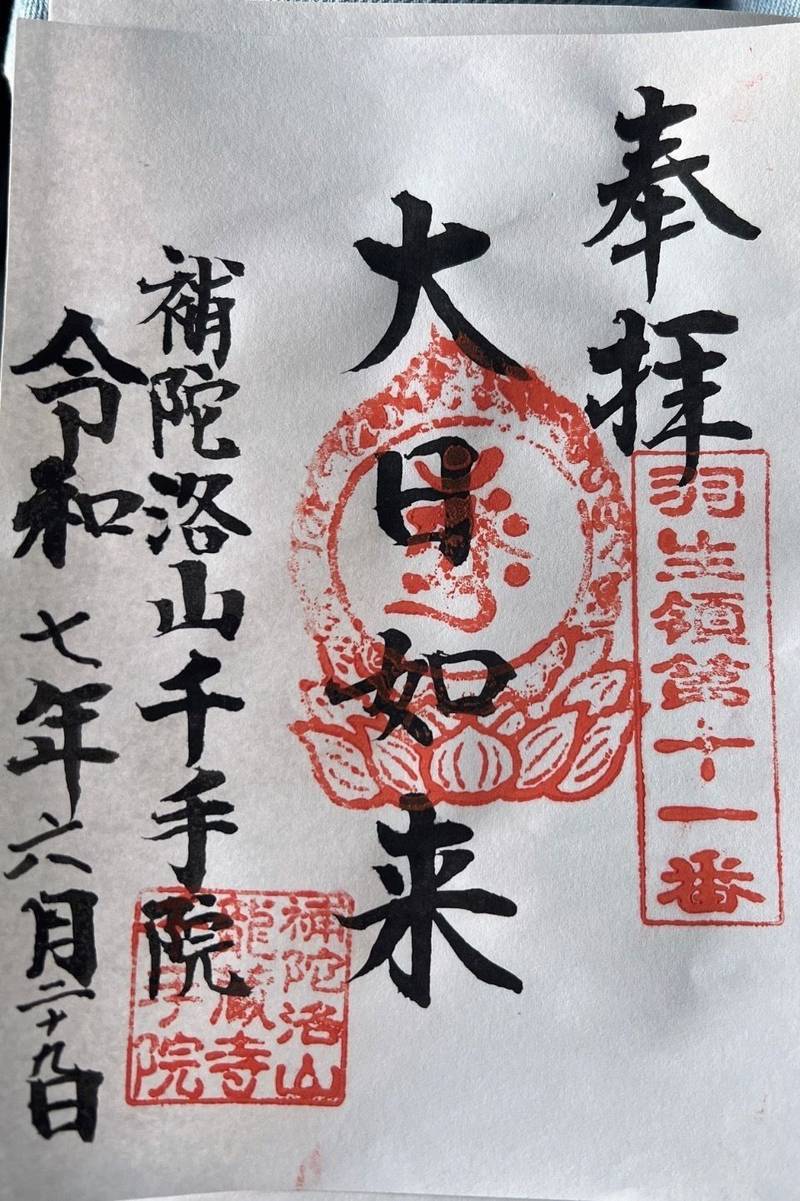 奉拝
羽生領第十一番
大日如来
補陀洛山千手院
補陀洛山
龍蔵寺
千手院
令和七年六月二十九日